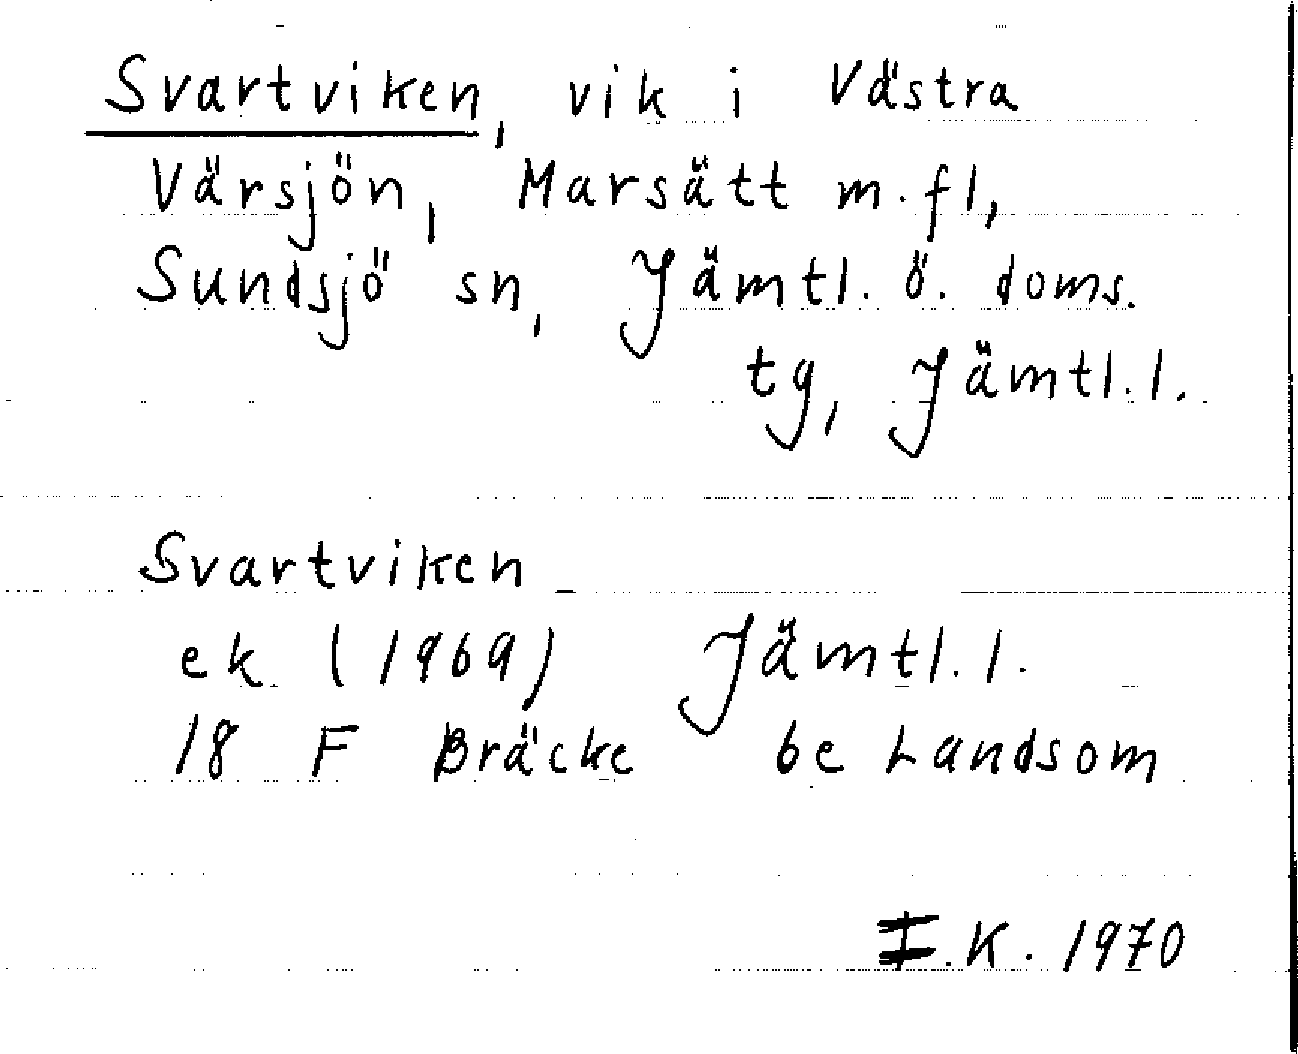 Svartviken, vik i Västra
Värsjön, Marsätt m.fl,
Sundsjö sn, Jämtl. ö. doms.
tg, Jämtl.l.
Svartviken
ek (1969) Jämtl.l.
18 F Bräcke be Landsom
I.K. 1970